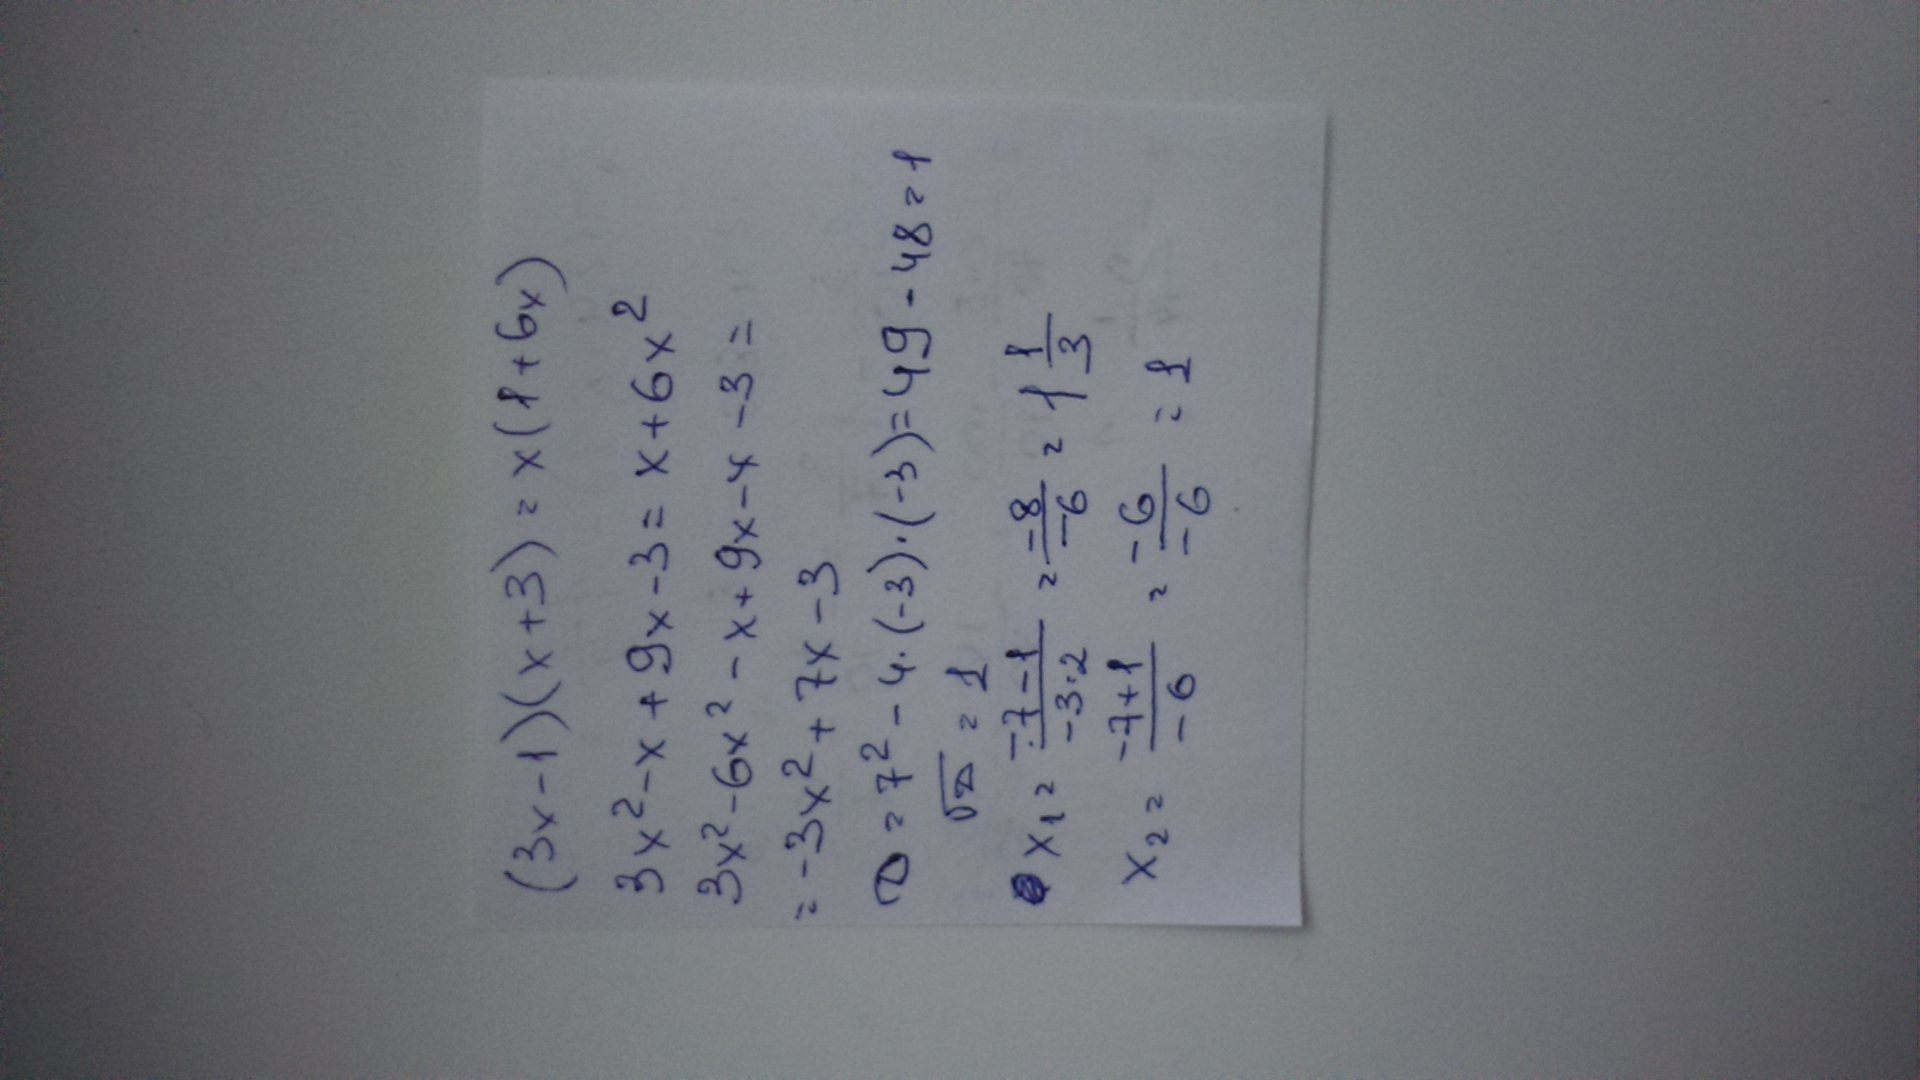 (3x-1)(x+3) = x(1+6x)
3x²-x+9x-3 = x+6x²
3x²-6x²-x+9x-x-3=
= -3x²+7x-3
D = 7²-4·(-3)·(-3)=49-48=1
√D = 1
x₁ = (-7-1)/(-3·2) = -8/-6 = 1 1/3
x₂ = (-7+1)/-6 = -6/-6 = 1